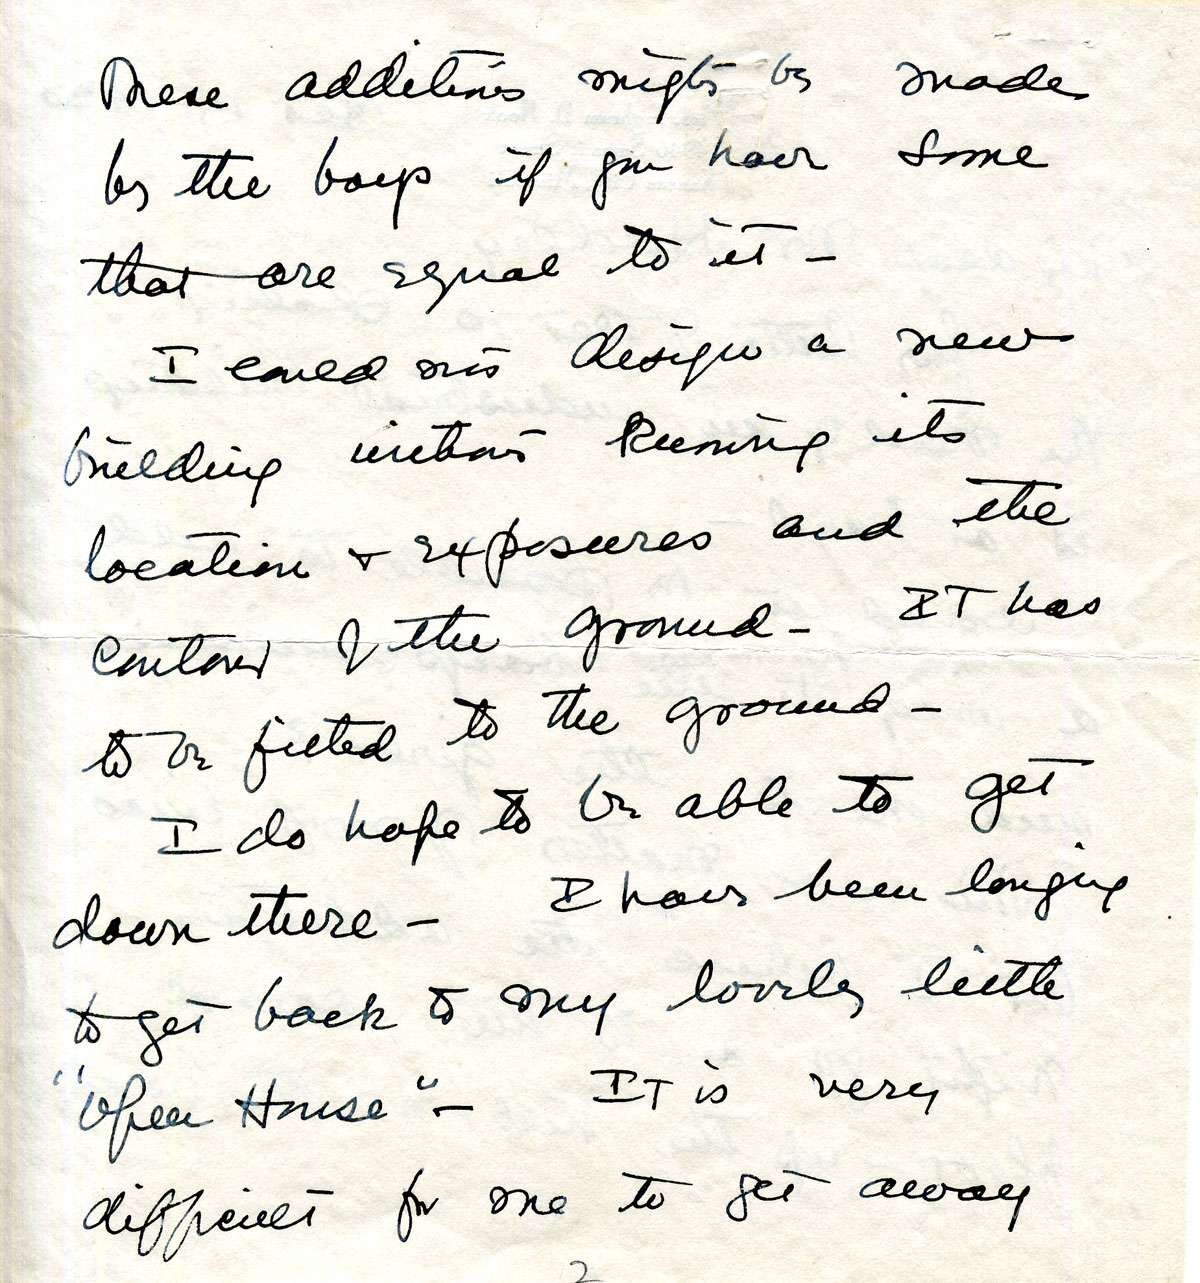 These additions might be made
by the boys if you have some
that are equal to it —
I could not design a new
building without knowing its
location + exposures and the
contour of the ground — It has
to be fitted to the ground —
I do hope to be able to get
down there — I have been longing
to get back to my lovely little
"Open House" — It is very
difficult for me to get away
2